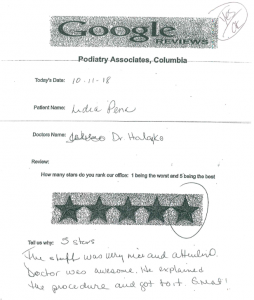 Google
REVIEWS
Podiatry Associates, Columbia
Today's Date: 10-11-18
Patient Name: Lidia Pena
Doctors Name: Dr Halapko
Review:
How many stars do you rank our office: 1 being the worst and 5 being the best
Tell us why: 5 stars
The staff was very nice and attentive.
Doctor was awesome. He explained
the procedure and got to it. Great!